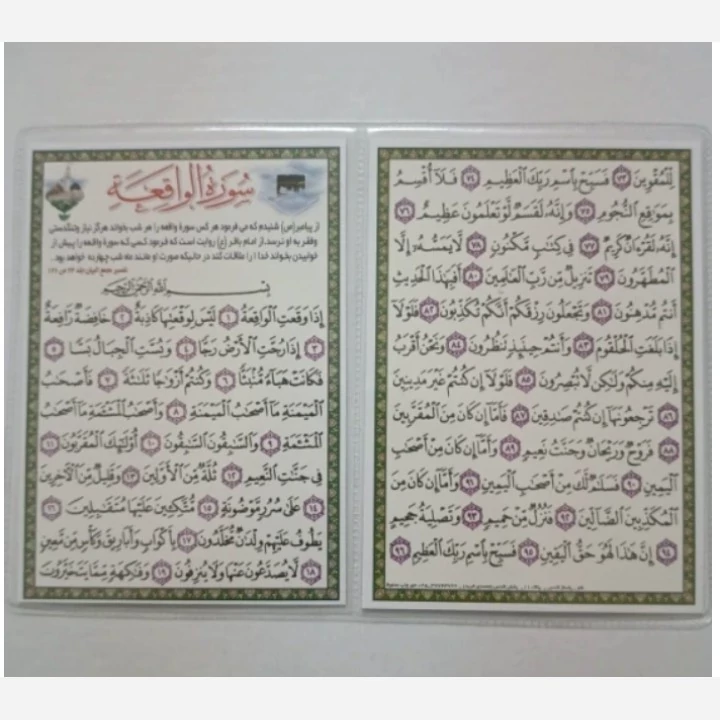 سُورَةُ الْوَاقِعَة
از پیامبر(ص) شنیدم که می فرمود هر کس سورۀ واقعه را هر شب بخواند هرگز نیاز وتنگدستی
وفقر به او نرسد. از امام باقر (ع) روایت است که فرمود کسی که سورۀ واقعه را پیش از
خوابیدن بخواند خدا را ملاقات کند در حالیکه صورت او مانند ماه شب چهارده خواهد بود.
بِسْمِ اللَّهِ الرَّحْمَنِ الرَّحِيمِ
إِذَا وَقَعَتِ الْوَاقِعَةُ ١ لَيْسَ لِوَقْعَتِهَا كَاذِبَةٌ ٢ خَافِضَةٌ رَافِعَةٌ
٣ إِذَا رُجَّتِ الْأَرْضُ رَجًّا ٤ وَبُسَّتِ الْجِبَالُ بَسًّا ٥
فَكَانَتْ هَبَاءً مُنْبَثًّا ٦ وَكُنْتُمْ أَزْوَاجًا ثَلَاثَةً ٧ فَأَصْحَابُ
الْمَيْمَنَةِ مَا أَصْحَابُ الْمَيْمَنَةِ ٨ وَأَصْحَابُ الْمَشْئَمَةِ مَا أَصْحَابُ
الْمَشْئَمَةِ ٩ وَالسَّابِقُونَ السَّابِقُونَ ١٠ أُولَئِكَ الْمُقَرَّبُونَ ١١
فِي جَنَّاتِ النَّعِيمِ ١٢ ثُلَّةٌ مِنَ الْأَوَّلِينَ ١٣ وَقَلِيلٌ مِنَ الْآخِرِينَ
١٤ عَلَى سُرُرٍ مَوْضُونَةٍ ١٥ مُتَّكِئِينَ عَلَيْهَا مُتَقَابِلِينَ ١٦
يَطُوفُ عَلَيْهِمْ وِلْدَانٌ مُخَلَّدُونَ ١٧ بِأَكْوَابٍ وَأَبَارِيقَ وَكَأْسٍ مِنْ مَعِينٍ
١٨ لَا يُصَدَّعُونَ عَنْهَا وَلَا يُنْزِفُونَ ١٩ وَفَاكِهَةٍ مِمَّا يَتَخَيَّرُونَ
لِلْمُقْوِينَ ٧٣ فَسَبِّحْ بِاسْمِ رَبِّكَ الْعَظِيمِ ٧٤ فَلَا أُقْسِمُ
بِمَوَاقِعِ النُّجُومِ ٧٥ وَإِنَّهُ لَقَسَمٌ لَوْ تَعْلَمُونَ عَظِيمٌ ٧٦
إِنَّهُ لَقُرْآنٌ كَرِيمٌ ٧٧ فِي كِتَابٍ مَكْنُونٍ ٧٨ لَا يَمَسُّهُ إِلَّا
الْمُطَهَّرُونَ ٧٩ تَنْزِيلٌ مِنْ رَبِّ الْعَالَمِينَ ٨٠ أَفَبِهَذَا الْحَدِيثِ
أَنْتُمْ مُدْهِنُونَ ٨١ وَتَجْعَلُونَ رِزْقَكُمْ أَنَّكُمْ تُكَذِّبُونَ ٨٢ فَلَوْلَا
إِذَا بَلَغَتِ الْحُلْقُومَ ٨٣ وَأَنْتُمْ حِينَئِذٍ تَنْظُرُونَ ٨٤ وَنَحْنُ أَقْرَبُ
إِلَيْهِ مِنْكُمْ وَلَكِنْ لَا تُبْصِرُونَ ٨٥ فَلَوْلَا إِنْ كُنْتُمْ غَيْرَ مَدِينِينَ
٨٦ تَرْجِعُونَهَا إِنْ كُنْتُمْ صَادِقِينَ ٨٧ فَأَمَّا إِنْ كَانَ مِنَ الْمُقَرَّبِينَ
٨٨ فَرَوْحٌ وَرَيْحَانٌ وَجَنَّتُ نَعِيمٍ ٨٩ وَأَمَّا إِنْ كَانَ مِنْ أَصْحَابِ
الْيَمِينِ ٩٠ فَسَلَامٌ لَكَ مِنْ أَصْحَابِ الْيَمِينِ ٩١ وَأَمَّا إِنْ كَانَ مِنَ
الْمُكَذِّبِينَ الضَّالِّينَ ٩٢ فَنُزُلٌ مِنْ حَمِيمٍ ٩٣ وَتَصْلِيَةُ جَحِيمٍ
٩٤ إِنَّ هَذَا لَهُوَ حَقُّ الْيَقِينِ ٩٥ فَسَبِّحْ بِاسْمِ رَبِّكَ الْعَظِيمِ ٩٦